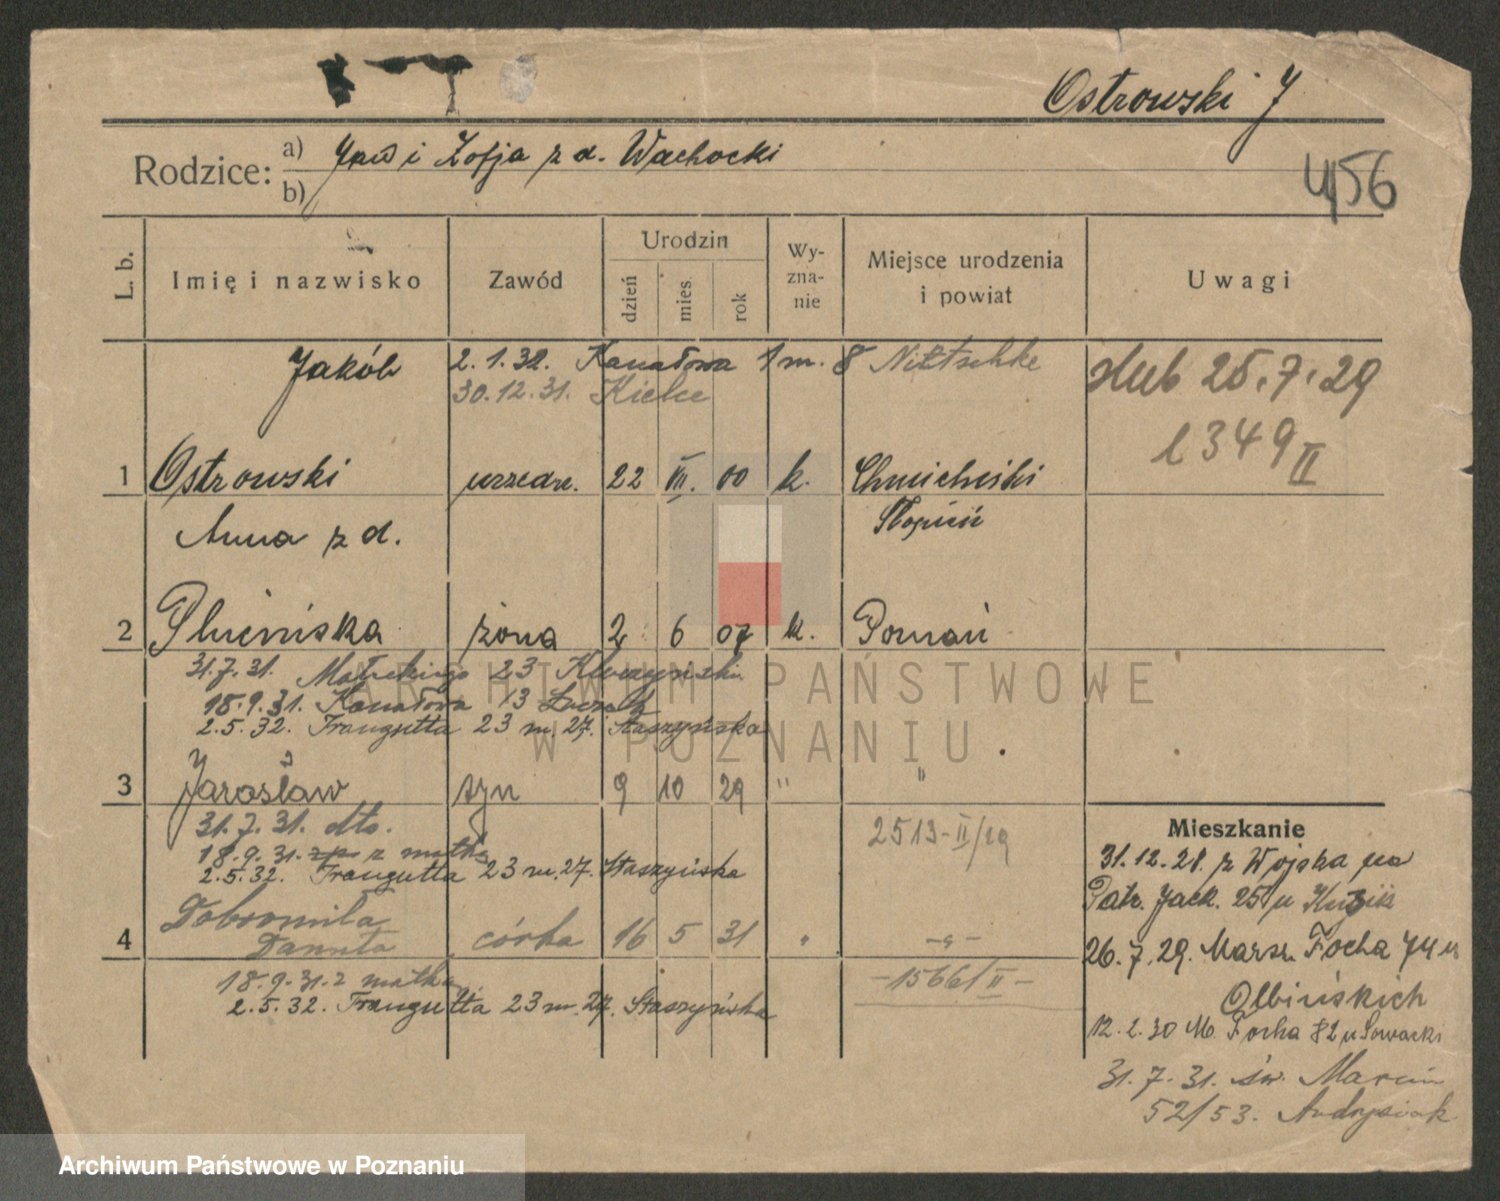 Ostrowski J
Rodzice: a) Jan i Zofja z d. Wachocki
b)
4156
L. b.
Imię i nazwisko
Zawód
Urodzin
dzień
mies
rok
Wy-
zna-
nie
Miejsce urodzenia
i powiat
Uwagi
Jakób 2.1.32. Kanałowa 1 m. 8 Nittschke
30.12.31. Kielce
ślub 25.7.29
1349 II
1 Ostrowski urzędn. 22 VII. 00 k.
Anna z d.
2 Plucińska żona 2 6 07 k. Poznań
31.7.31. Małeckiego 23
18.9.31. Kanałowa 13
2.5.32. Traugutta 23 m. 27. Staszyńska
3 Jarosław syn 9 10 29 " "
31.7.31. dto.
18.9.31. z matką
2.5.32. Traugutta 23 m. 27. Staszyńska
2513-II/29
4 Dobromiła
Danuta córka 16 5 31 " -"-
18.9.31 z matką
2.5.32. Traugutta 23 m. 27. Staszyńska
-1566/II-
Mieszkanie
31.12.28. z Wojska na
Patr. Jack. 25 u
26.7.29. Marsz. Focha 74 u
Olbińskich
12.2.30 M. Focha 82 u
31.7.31. św. Marcin
52/53. Andrysiak
ARCHIWUM PAŃSTWOWE
W POZNANIU
Archiwum Państwowe w Poznaniu